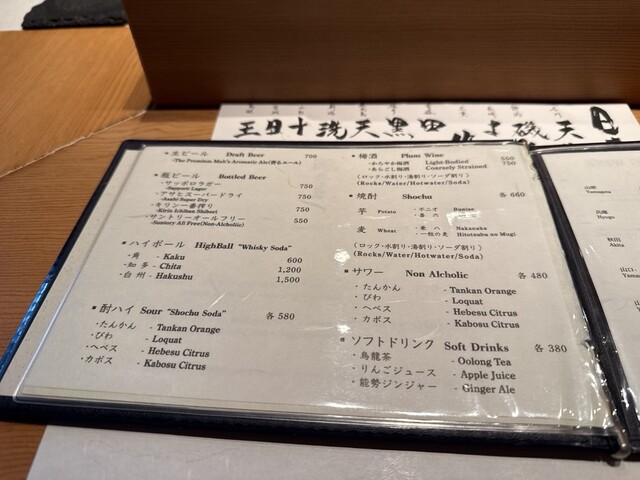 王目十洗天黒田
磯天
・生ビール Draft Beer 700
-The Premium Malt's Aromatic Ale(香るエール)
・瓶ビール Bottled Beer
・サッポロラガー 750
-Sapporo Lager
・アサヒスーパードライ 750
-Asahi Super Dry
・キリン一番搾り 750
-Kirin Ichiban Shibori
・サントリーオールフリー 550
-Suntory All Free(Non-Alcholic)
・ハイボール HighBall "Whisky Soda"
・角 - Kaku 600
・知多 - Chita 1,200
・白州 - Hakushu 1,500
・酎ハイ Sour "Shochu Soda" 各 580
・たんかん - Tankan Orange
・びわ - Loquat
・ヘベス - Hebesu Citrus
・カボス - Kabosu Citrus
・梅酒 Plum Wine
・かろやか梅酒 Light-Bodied 550
・あらごし梅酒 Coarsely Strained 750
(ロック・水割り・湯割り・ソーダ割り)
(Rocks/Water/Hotwater/Soda)
・焼酎 Shochu 各 660
芋 Potato
麦 Wheat Nakanaka
・一粒の麦 Hitotsubu no Mugi
(ロック・水割り・湯割り・ソーダ割り)
(Rocks/Water/Hotwater/Soda)
・サワー Non Alcholic 各 480
・たんかん - Tankan Orange
・びわ - Loquat
・ヘベス - Hebesu Citrus
・カボス - Kabosu Citrus
・ソフトドリンク Soft Drinks 各 380
・烏龍茶 - Oolong Tea
・りんごジュース - Apple Juice
・能勢ジンジャー - Ginger Ale
山形
Yamagata
兵庫
Hyogo
秋田
Akita
山口